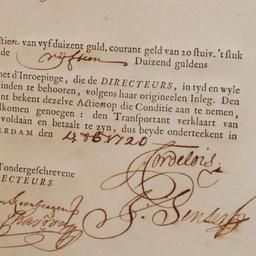 ction van vyf duizent guld. courant geld van 20 stuiv. 't stuk
de vijftien Duizend guldens
net d'Inroepinge, die de DIRECTEURS, in tyd en wyle
inden te behooren, volgens haar origineelen Inleg. Den
ent bekent dezelve Actie op die Conditie aan te nemen,
lkomen genoegen: den Transportant verklaart van
voldaan en betaalt te zyn, dus beyde onderteekent in
ERDAM den 1720
Cordelois
d'ondergeschrevene
RECTEURS